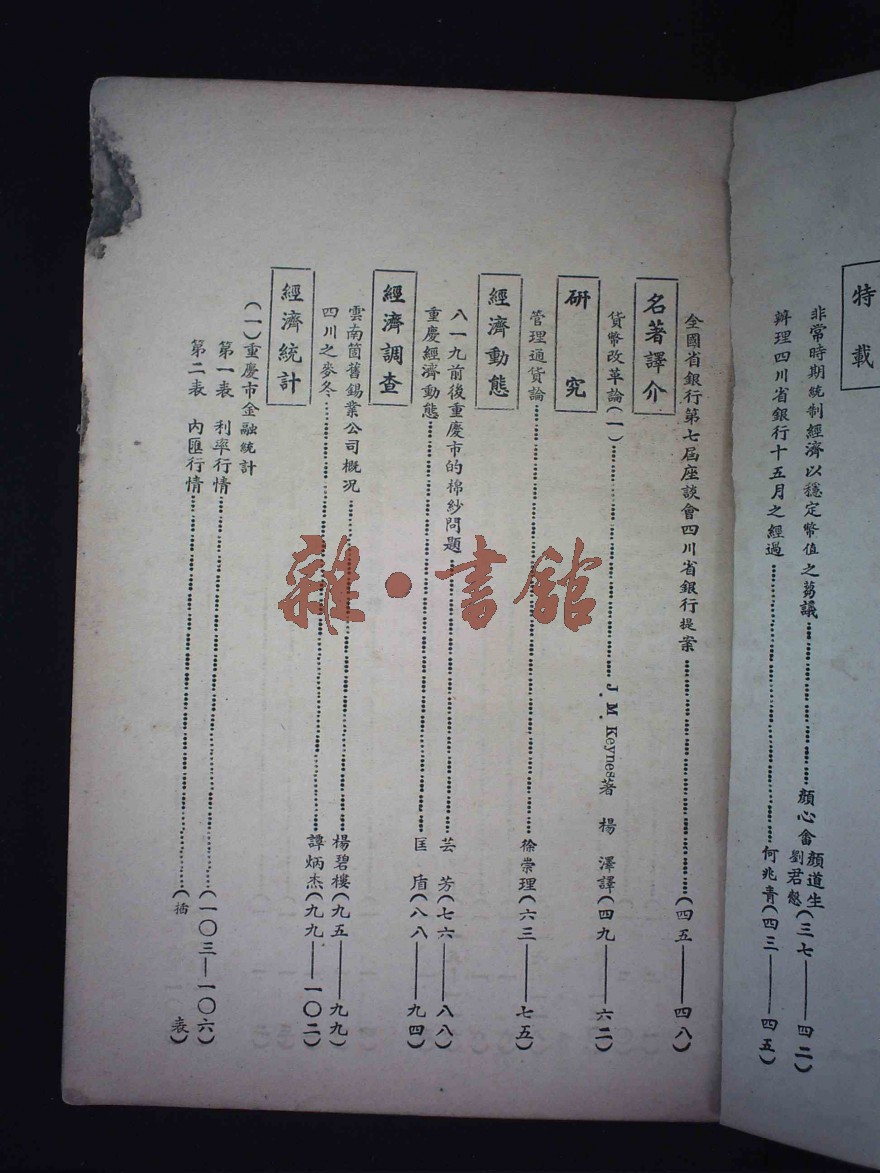 特載
非常時期統制經濟以穩定幣值之芻議……顏心畬 顏道生 劉君慤(三七——四二)
辦理四川省銀行十五月之經過……何兆青(四三——四五)
全國省銀行第七屆座談會四川省銀行提案……(四五——四八)
名著譯介
貨幣改革論(一)……J. M. Keynes著 楊澤譯(四九——六二)
研究
管理通貨論……徐崇理(六三——七五)
經濟動態
八一九前後重慶市的棉紗問題……芸芳(七六——八八)
重慶經濟動態……匡盾(八八——九四)
經濟調查
雲南箇舊錫業公司概況……楊碧樓(九五——九九)
四川之麥冬……譚炳杰(九九——一〇二)
經濟統計
(一)重慶市金融統計
第一表 利率行情……(一〇三—一〇六)
第二表 內匯行情……(插表)
雜·書館